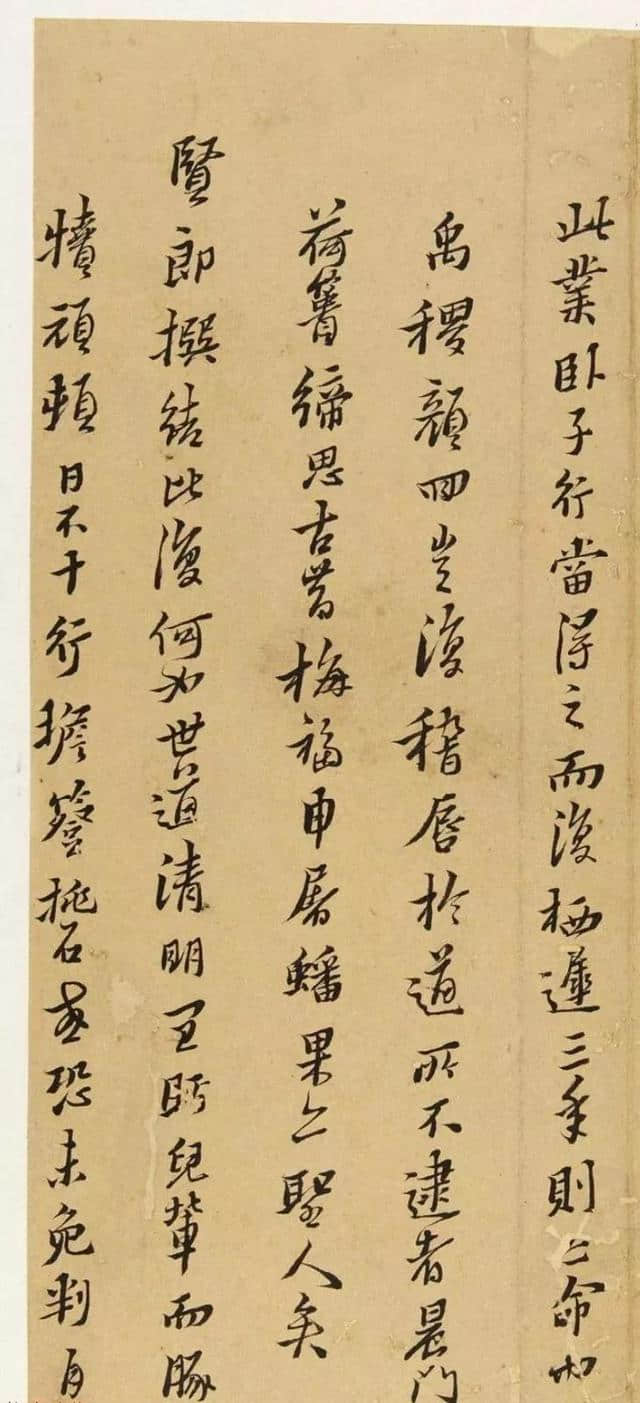 此業卧子行當得之而復栖遲三年則亦命也
禹稷顏回豈復稽唇於道所不逮者晨門
荷蕢締思古昔梅福申屠蟠果亦聖人矣
賢郎撰結比復何如世道清明更眄兒輩而豚
犢頑頼日不十行擔簦挑石甚恐未免判自